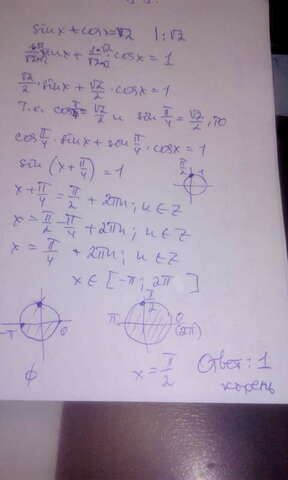 sinx + cosx = √2 | : √2
sinx + cosx = 1
√2/2 · sinx + √2/2 · cosx = 1
Т.к. cos π/4 = √2/2 и sin π/4 = √2/2, то
cos π/4 · sinx + sin π/4 · cosx = 1
sin (x + π/4) = 1
π/2 1
x + π/4 = π/2 + 2πn; n ∈ Z
x = π/2 - π/4 + 2πn; n ∈ Z
x = π/4 + 2πn; n ∈ Z
x ∈ [-π; 2π]
π/2
-π 0 π 0
(2π)
∅ x = π/2 Ответ: 1
корень